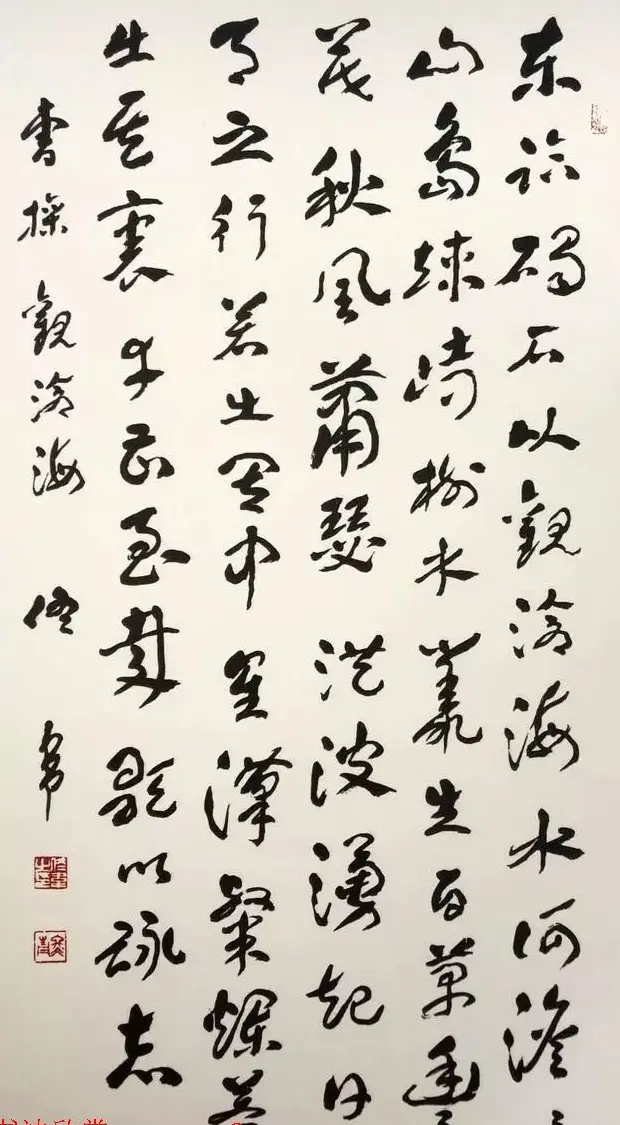 東臨碣石以觀滄海水何澹
山島竦峙樹木叢生百草豐
茂秋風蕭瑟洪波湧起日
月之行若出其中星漢粲爛若
出其裏幸甚至哉歌以詠志
曹操觀滄海 佟韋